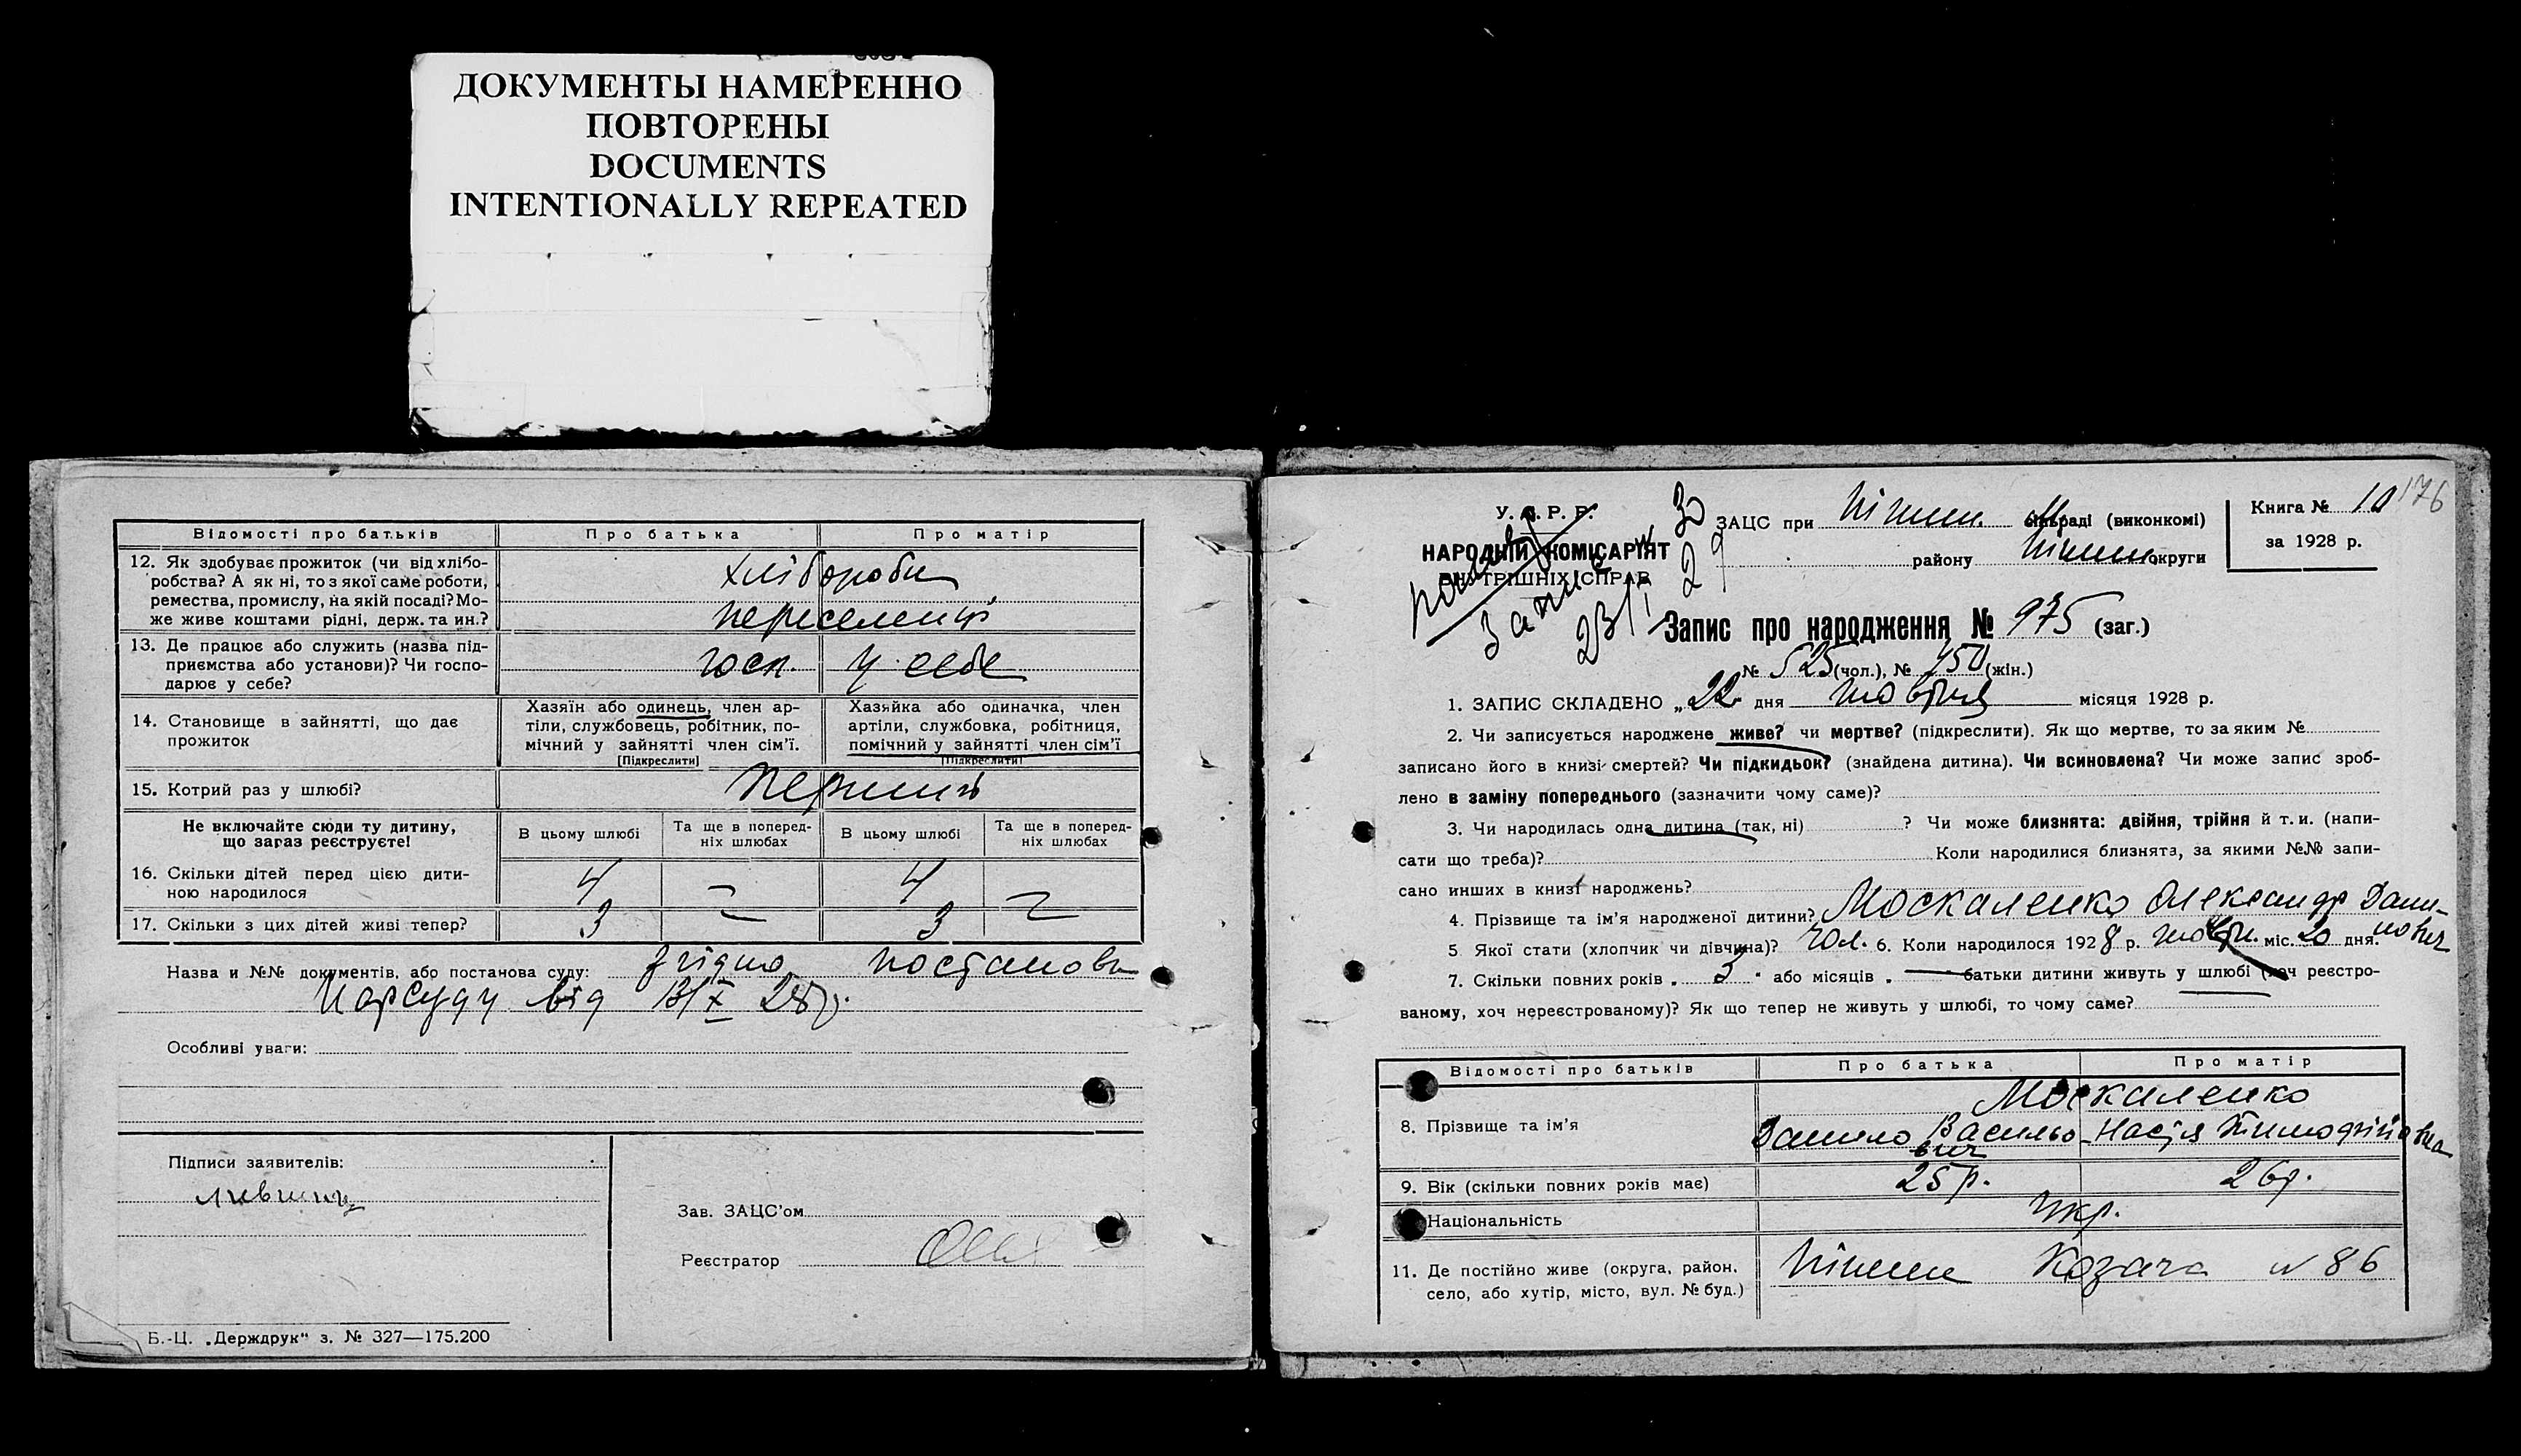 ДОКУМЕНТЫ НАМЕРЕННО
ПОВТОРЕНЫ
DOCUMENTS
INTENTIONALLY REPEATED
Відомості про батьків
Про батька
Про матір
12. Як здобуває прожиток (чи від хлібо-
робства? А як ні, то з якої саме роботи,
ремества, промислу, на якій посаді? Мо-
же живе коштами рідні, держ. та ин.?
хлібороби
переселенці
13. Де працює або служить (назва під-
приємства або установи)? Чи госпо-
дарює у себе?
госп. у себе
14. Становище в зайнятті, що дає
прожиток
Хазяїн або одинець, член ар-
тіли, службовець, робітник, по-
мічний у зайнятті член сім'ї.
[Підкреслити]
Хазяйка або одиначка, член
артіли, службовка, робітниця,
помічний у зайнятті член сім'ї
[Підкреслити]
15. Котрий раз у шлюбі?
перший
Не включайте сюди ту дитину,
що зараз реєструєте!
В цьому шлюбі
Та ще в поперед-
ніх шлюбах
В цьому шлюбі
Та ще в поперед-
ніх шлюбах
16. Скільки дітей перед цією дити-
ною народилося
4 – 4 –
17. Скільки з цих дітей живі тепер?
3 3
Назва и №№ документів, або постанова суду: згідно постанови
Нарсуду від 13/X 28р.
Особливі уваги:
Підписи заявителів:
Зав. ЗАЦС'ом
Реєстратор
Б.-Ц. „Держдрук" з. № 327—175.200
У. С. Р. Р.
НАРОДНІЙ КОМІСАРІЯТ
ВНУТРІШНІХ СПРАВ
ЗАЦС при Ніжин. сільраді (виконкомі)
району Ніжин. округи
Книга № 10
176
за 1928 р.
Запис про народження № 975 (заг.)
№ 525 (чол.), № 450 (жін.)
1. ЗАПИС СКЛАДЕНО „22" дня жовтня місяця 1928 р.
2. Чи записується народжене живе? чи мертве? (підкреслити). Як що мертве, то за яким №
записано його в книзі смертей? Чи підкидьок? (знайдена дитина). Чи всиновлена? Чи може запис зроб-
лено в заміну попереднього (зазначити чому саме)?
3. Чи народилась одна дитина (так, ні) ? Чи може близнята: двійня, трійня й т. и. (напи-
сати що треба)? Коли народилися близнята, за якими №№ запи-
сано инших в книзі народжень?
4. Прізвище та ім'я народженої дитини? Москаленко Олександр Дани-
лович
5 Якої стати (хлопчик чи дівчина)? чол. 6. Коли народилося 1928 р. жовтн. міс. 20 дня.
7. Скільки повних років „ 5 " або місяців „ — батьки дитини живуть у шлюбі (хоч реєстро-
ваному, хоч нереєстрованому)? Як що тепер не живуть у шлюбі, то чому саме?
Відомості про батьків
Про батька
Про матір
8. Прізвище та ім'я
Москаленко
Данило Васильо-
вич
Настя Тимофіївна
9. Вік (скільки повних років має)
25 р. 26 р.
Національність
Укр.
11. Де постійно живе (округа, район,
село, або хутір, місто, вул. № буд.)
Ніжин Козача № 86